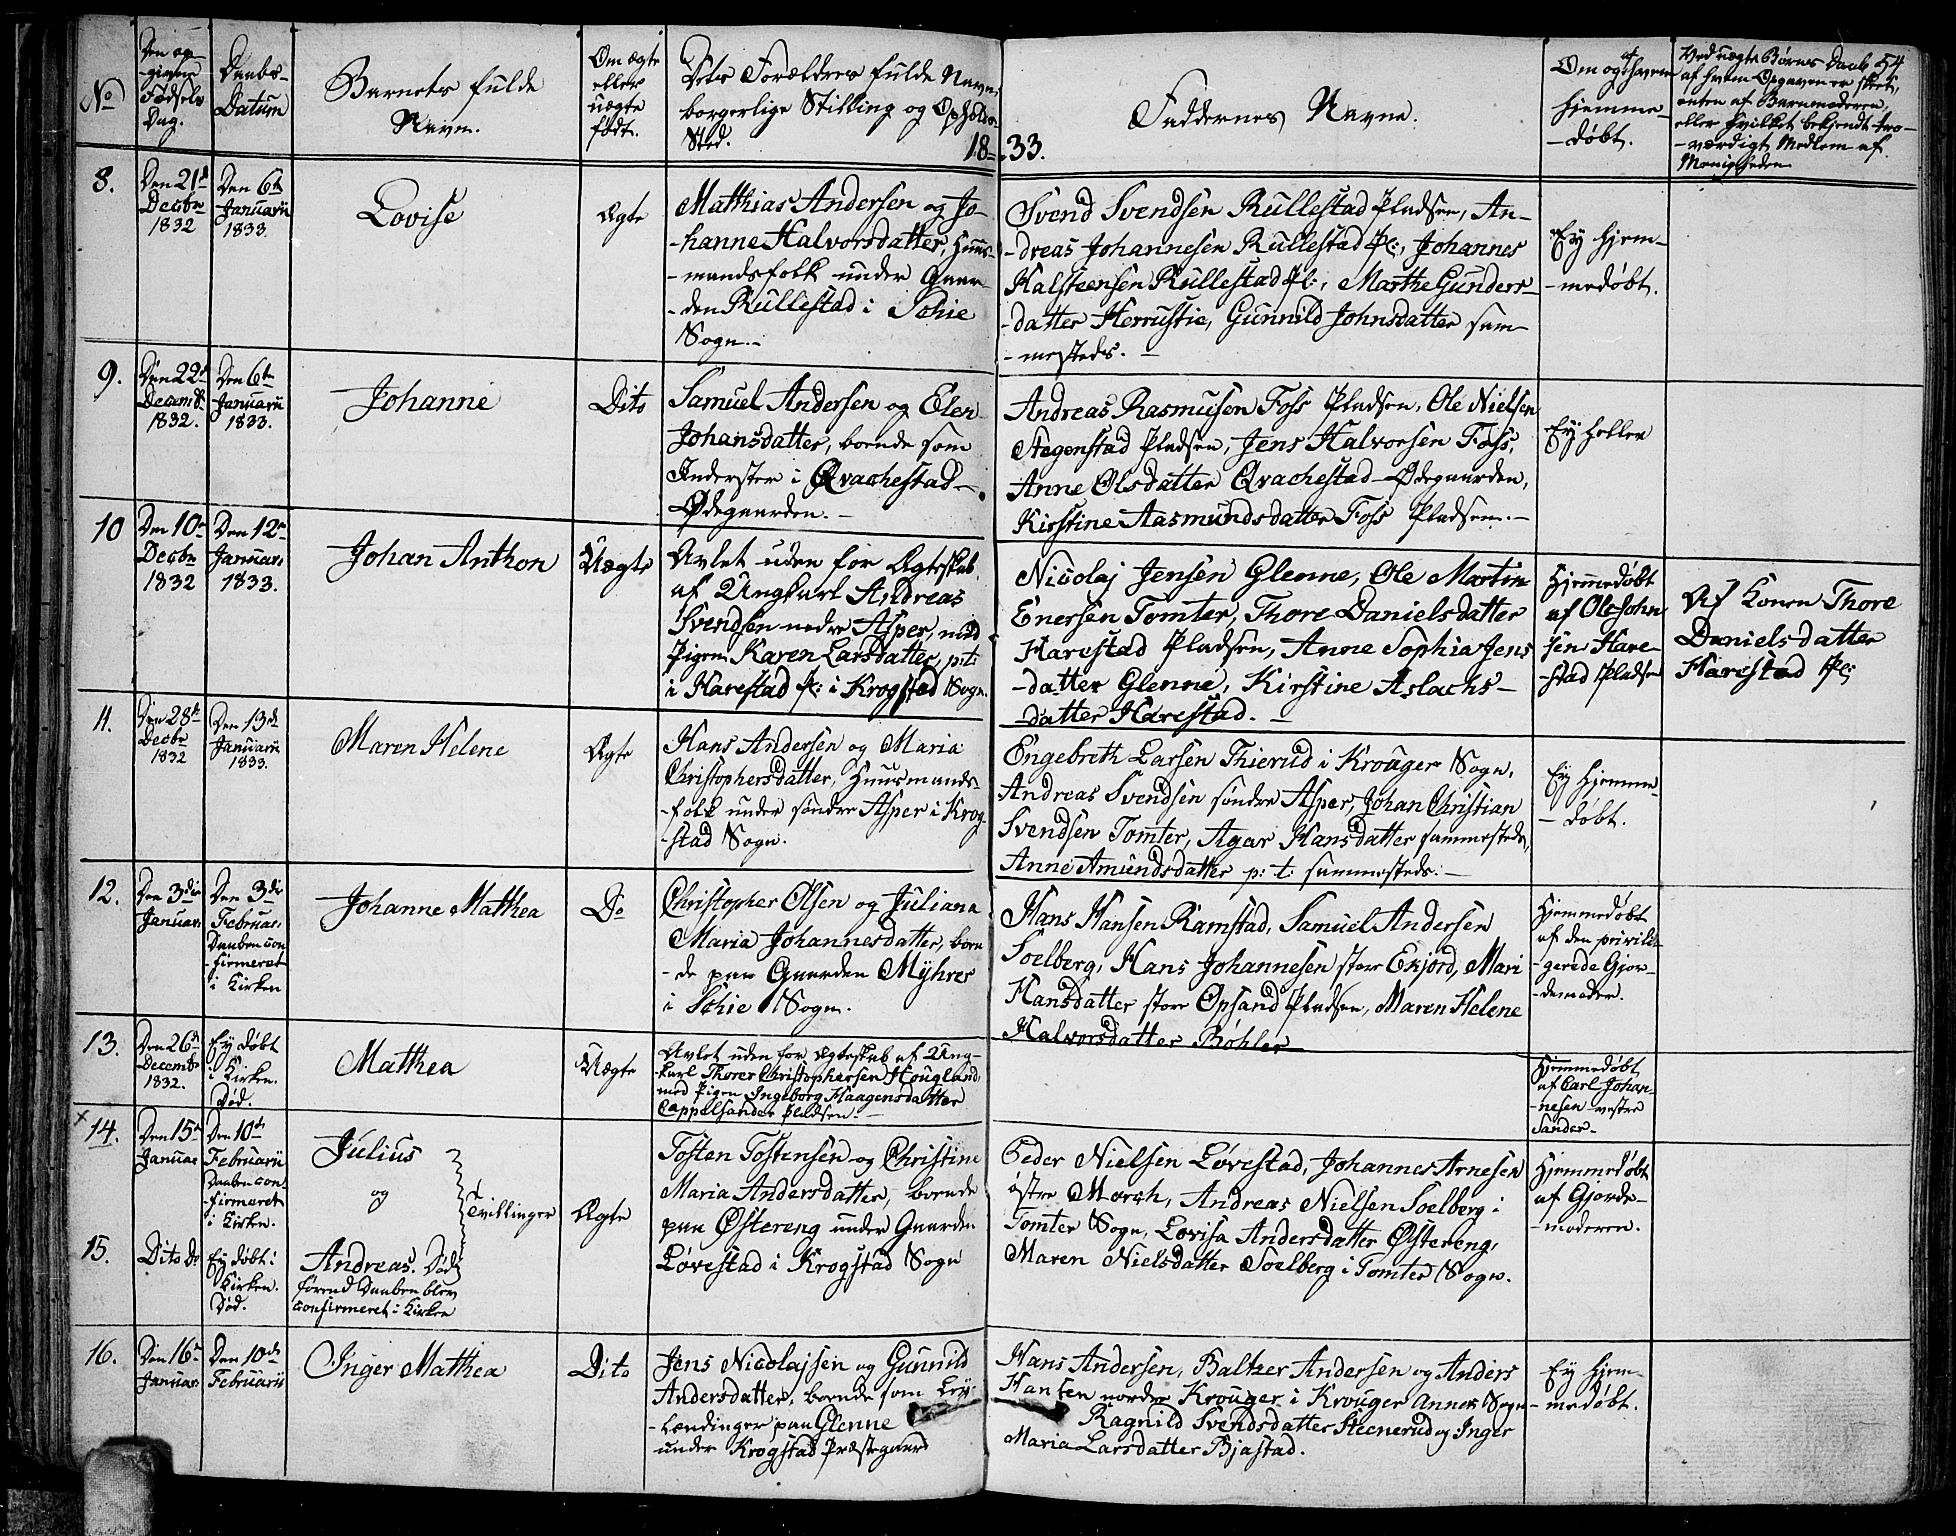 No
Den op-
-givne
Fødsels
Dag.
Daabs-
Datum
Barnets fulde
Navn.
Om ægte
eller
uægte
født.
Dets Forældres fulde Navne,
borgerlige Stilling og Opholds-
Sted.
18-33.
Faddernes Navne.
Om og af hvem
hjemme-
-døbt.
Ved uægte Børns Daab 54
af hvem Opgaven er skeet,
enten af Barnemoderen,
eller hvilket bekjendt tro-
-værdigt Medlem af
Menigheden
8.
Den 21d
Decbr
1832
Den 6te
Januarii
1833.
Lovise
Ægte
Matthias Andersen og Jo-
-hanne Halvorsdatter, Huus-
-mandsfolk under Gaar-
-den Rullestad i Schie
Sogn.-
Svend Svendsen Rullestad Pladsen, An-
-dreas Johannesen Rullestad Pl:, Johannes
Kalsteensen Rullestad Pl:, Marthe Gunders-
-datter Herrustie, Gunnild Johnsdatter sam-
-mesteds. -
Ey hjem-
-medøbt.
9.
Den 22d
Decemb.
1832.
Den 6te
Januarii
1833.
Johanne
Dito
Samuel Andersen og Elen
Johansdatter, boende som
Inderster i Qvachestad-
Ødegaarden. -
Andreas Rasmusen Foss Pladsen, Ole Nielsen
Stegenstad Pladsen, Jens Halvorsen Foss,
Anne Olsdatter Qvachestad-Ødegaarden,
Kirstine Aasmundsdatter Foss Pladsen.-
Ey heller
10
Den 10de
Decbr
1832
Den 12te
Januari
1833.
Johan Anthon
Uægte
Avlet uden for Ægteskab
af Ungkarl Andreas
Svendsen nedre Asper, med
Pigen Karen Larsdatter, p:t:
i Harestad Pl: i Krogstad Sogn.
Nicolaj Jensen Glenne, Ole Martin
Enersen Tomter, Thore Danielsdatter
Harestad Pladsen, Anne Sophia Jens
-datter Glenne, Kirstine Aslachs-
-datter Harestad. -
Hjemmedøbt
af Ole John
sen Hare-
-stad Pladsen
Af Konen Thore
Danielsdatter
Harestad Pl:
11.
Den 28de
Decbr
1832
Den 13de
Januarii
1833.
Maren Helene
Ægte
Hans Andersen og Maria
Christophersdatter, Huusmands-
-folk under søndre Asper i Krog-
-stad Sogn.
Engebreth Larsen Thierud i Krouger Sogn,
Andreas Svendsen søndre Asper, Johan Christian
Svendsen Tomter, Agar Hansdatter sammesteds,
Anne Amundsdatter p: t: sammesteds. -
Ey hjemme-
-døbt.
12.
Den 3die
Januari
Den 3die
Februar.
Daaben con
-firmeret
i Kirken
Johanne Mathea
Do
Christopher Olsen og Juliana
Maria Johannesdatter, boen
-de paa Gaarden Myhrer
i Schie Sogn.
Hans Hansen Ramstad, Samuel Andersen
Soelberg, Hans Johannesen store Ekjord, Mari
Hansdatter store Opsand Pladsen, Maren Helene
Halvorsdatter Bøhler
Hjemmedøbt
af den privile-
-gerede Gjor-
-demoder.
13.
Den 26de
Decembr
1832.
Ey døbt
i Kirken.
Død.
Matthea
Uægte
Avlet uden for Ægteskab af Ung-
karl Thorer Christophersen Hougland,
med Pigen Ingeborg Haagensdatter
Cappelsander Pladsen. -
Hjemmedøbt
af Carl Johan-
-nesen vestre
Sander-
x 14.
Den 15de
Januar
Den 10de
Februarii
Daaben con-
-firmeret
i Kirken.
Julius
og
Tvillinger
Ægte
Tosten Tostensen og Christine
Maria Andersdatter, boende
paa Østereng under Gaarden
Løvestad i Krogstad Sogn
Peder Nielsen Løvestad, Johannes Arnesen
østre Morch, Andreas Nielsen Soelberg i
Tomter Sogn, Lovisa Andersdatter Østereng,
Maren Nielsdatter Soelberg i Tomter Sogn.
Hjemmedøbt
af Gjorde-
-moderen.
15.
Dito Do
Ey døbt i
Kirken.
Død.
Andreas. Død
førend Daaben blev
confirmeret i Kirken
16.
Den 16de
Januar
Den 10de
Februarii
Inger Mathea
Dito
Jens Nicolajsen og Gunnild
Andersdatter, boende som Ley-
-lændinger paa Glenne
under Krogstad Præstegaard
Hans Andersen, Baltzer Andersen og Anders
Hansen nordre Krouger i Krouger Annex Sogn
Ragnild Svendsdatter Steenerud og Inger
Maria Larsdatter Bjastad.
Ey hjem-
-medøbt.